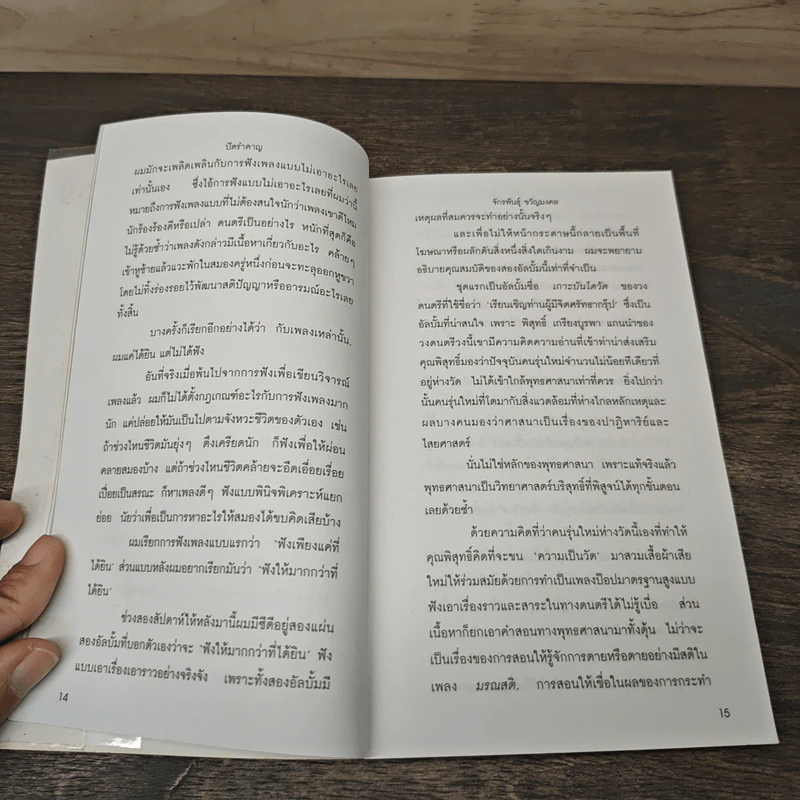 ปัดรำคาญ
ผมมักจะเพลิดเพลินกับการฟังเพลงแบบไม่เอาอะไรเลย
เท่านั้นเอง ซึ่งไอ้การฟังแบบไม่เอาอะไรเลยที่ผมว่านี้
หมายถึงการฟังเพลงแบบที่ไม่ต้องสนใจนักว่าเพลงเขาดีไหม
นักร้องร้องดีหรือเปล่า ดนตรีเป็นอย่างไร หนักที่สุดก็คือ
ไม่รู้ด้วยซ้ำว่าเพลงดังกล่าวมีเนื้อหาเกี่ยวกับอะไร คล้ายๆ
เข้าหูซ้ายแล้วแวะพักในสมองครู่หนึ่งก่อนจะทะลุออกหูขวา
โดยไม่ทิ้งร่องรอยไว้พัฒนาสติปัญญาหรืออารมณ์อะไรเลย
ทั้งสิ้น
บางครั้งก็เรียกอีกอย่างได้ว่า กับเพลงเหล่านั้น,
ผมแค่ได้ยิน แต่ไม่ได้ฟัง
อันที่จริงเมื่อพ้นไปจากการฟังเพื่อเขียนวิจารณ์
เพลงแล้ว ผมก็ไม่ได้ตั้งกฎเกณฑ์อะไรกับการฟังเพลงมาก
นัก แค่ปล่อยให้มันเป็นไปตามจังหวะชีวิตของตัวเอง เช่น
ถ้าช่วงไหนชีวิตมันยุ่งๆ ตึงเครียดนัก ก็ฟังเพื่อให้ผ่อน
คลายสมองบ้าง แต่ถ้าช่วงไหนชีวิตคล้ายจะอืดเอื่อยเรื่อย
เปื่อยเป็นสรณะ ก็หาเพลงดีๆ ฟังแบบพินิจพิเคราะห์แยก
ย่อย นัยว่าเพื่อเป็นการหาอะไรให้สมองได้ขบคิดเสียบ้าง
ผมเรียกการฟังเพลงแบบแรกว่า 'ฟังเพียงแค่ที่
ได้ยิน' ส่วนแบบหลังผมอยากเรียกมันว่า 'ฟังให้มากกว่าที่
ได้ยิน'
ช่วงสองสัปดาห์ให้หลังมานี้ผมมีซีดีอยู่สองแผ่น
สองอัลบั้มที่บอกตัวเองว่าจะ 'ฟังให้มากกว่าที่ได้ยิน' ฟัง
แบบเอาเรื่องเอาราวอย่างจริงจัง เพราะทั้งสองอัลบั้มมี
14
จักรพันธุ์ ขวัญมงคล
เหตุผลที่สมควรจะทำอย่างนั้นจริงๆ
และเพื่อไม่ให้หน้ากระดาษนี้กลายเป็นพื้นที่
โฆษณาหรือผลักดันสิ่งหนึ่งสิ่งใดเกินงาม ผมจะพยายาม
อธิบายคุณสมบัติของสองอัลบั้มนี้เท่าที่จำเป็น
ชุดแรกเป็นอัลบั้มชื่อ เกาะบันไดวัด ของวง
ดนตรีที่ใช้ชื่อว่า 'เรียนเชิญท่านผู้มีจิตศรัทธากรุ๊ป' ซึ่งเป็น
อัลบั้มที่น่าสนใจ เพราะ พิสุทธิ์ เกรียงบูรพา แกนนำของ
วงดนตรีวงนี้เขามีความคิดความอ่านที่เข้าท่าน่าส่งเสริม
คุณพิสุทธิ์มองว่าปัจจุบันคนรุ่นใหม่จำนวนไม่น้อยทีเดียวที่
อยู่ห่างวัด ไม่ได้เข้าใกล้พุทธศาสนาเท่าที่ควร ยิ่งไปกว่า
นั้นคนรุ่นใหม่ที่โตมากับสิ่งแวดล้อมที่ห่างไกลหลักเหตุและ
ผลบางคนมองว่าศาสนาเป็นเรื่องของปาฏิหาริย์และ
ไสยศาสตร์
นั่นไม่ใช่หลักของพุทธศาสนา เพราะแท้จริงแล้ว
พุทธศาสนาเป็นวิทยาศาสตร์บริสุทธิ์ที่พิสูจน์ได้ทุกขั้นตอน
เลยด้วยซ้ำ
ด้วยความคิดที่ว่าคนรุ่นใหม่ห่างวัดนี้เองที่ทำให้
คุณพิสุทธิ์คิดที่จะขน 'ความเป็นวัด' มาสวมเสื้อผ้าเสีย
ใหม่ให้ร่วมสมัยด้วยการทำเป็นเพลงป๊อปมาตรฐานสูงแบบ
ฟังเอาเรื่องราวและสาระในทางดนตรีได้ไม่รู้เบื่อ ส่วน
เนื้อหาก็ยกเอาคำสอนทางพุทธศาสนามาทั้งดุ้น ไม่ว่าจะ
เป็นเรื่องของการสอนให้รู้จักการตายหรือตายอย่างมีสติใน
เพลง มรณสติ, การสอนให้เชื่อในผลของการกระทำ
15